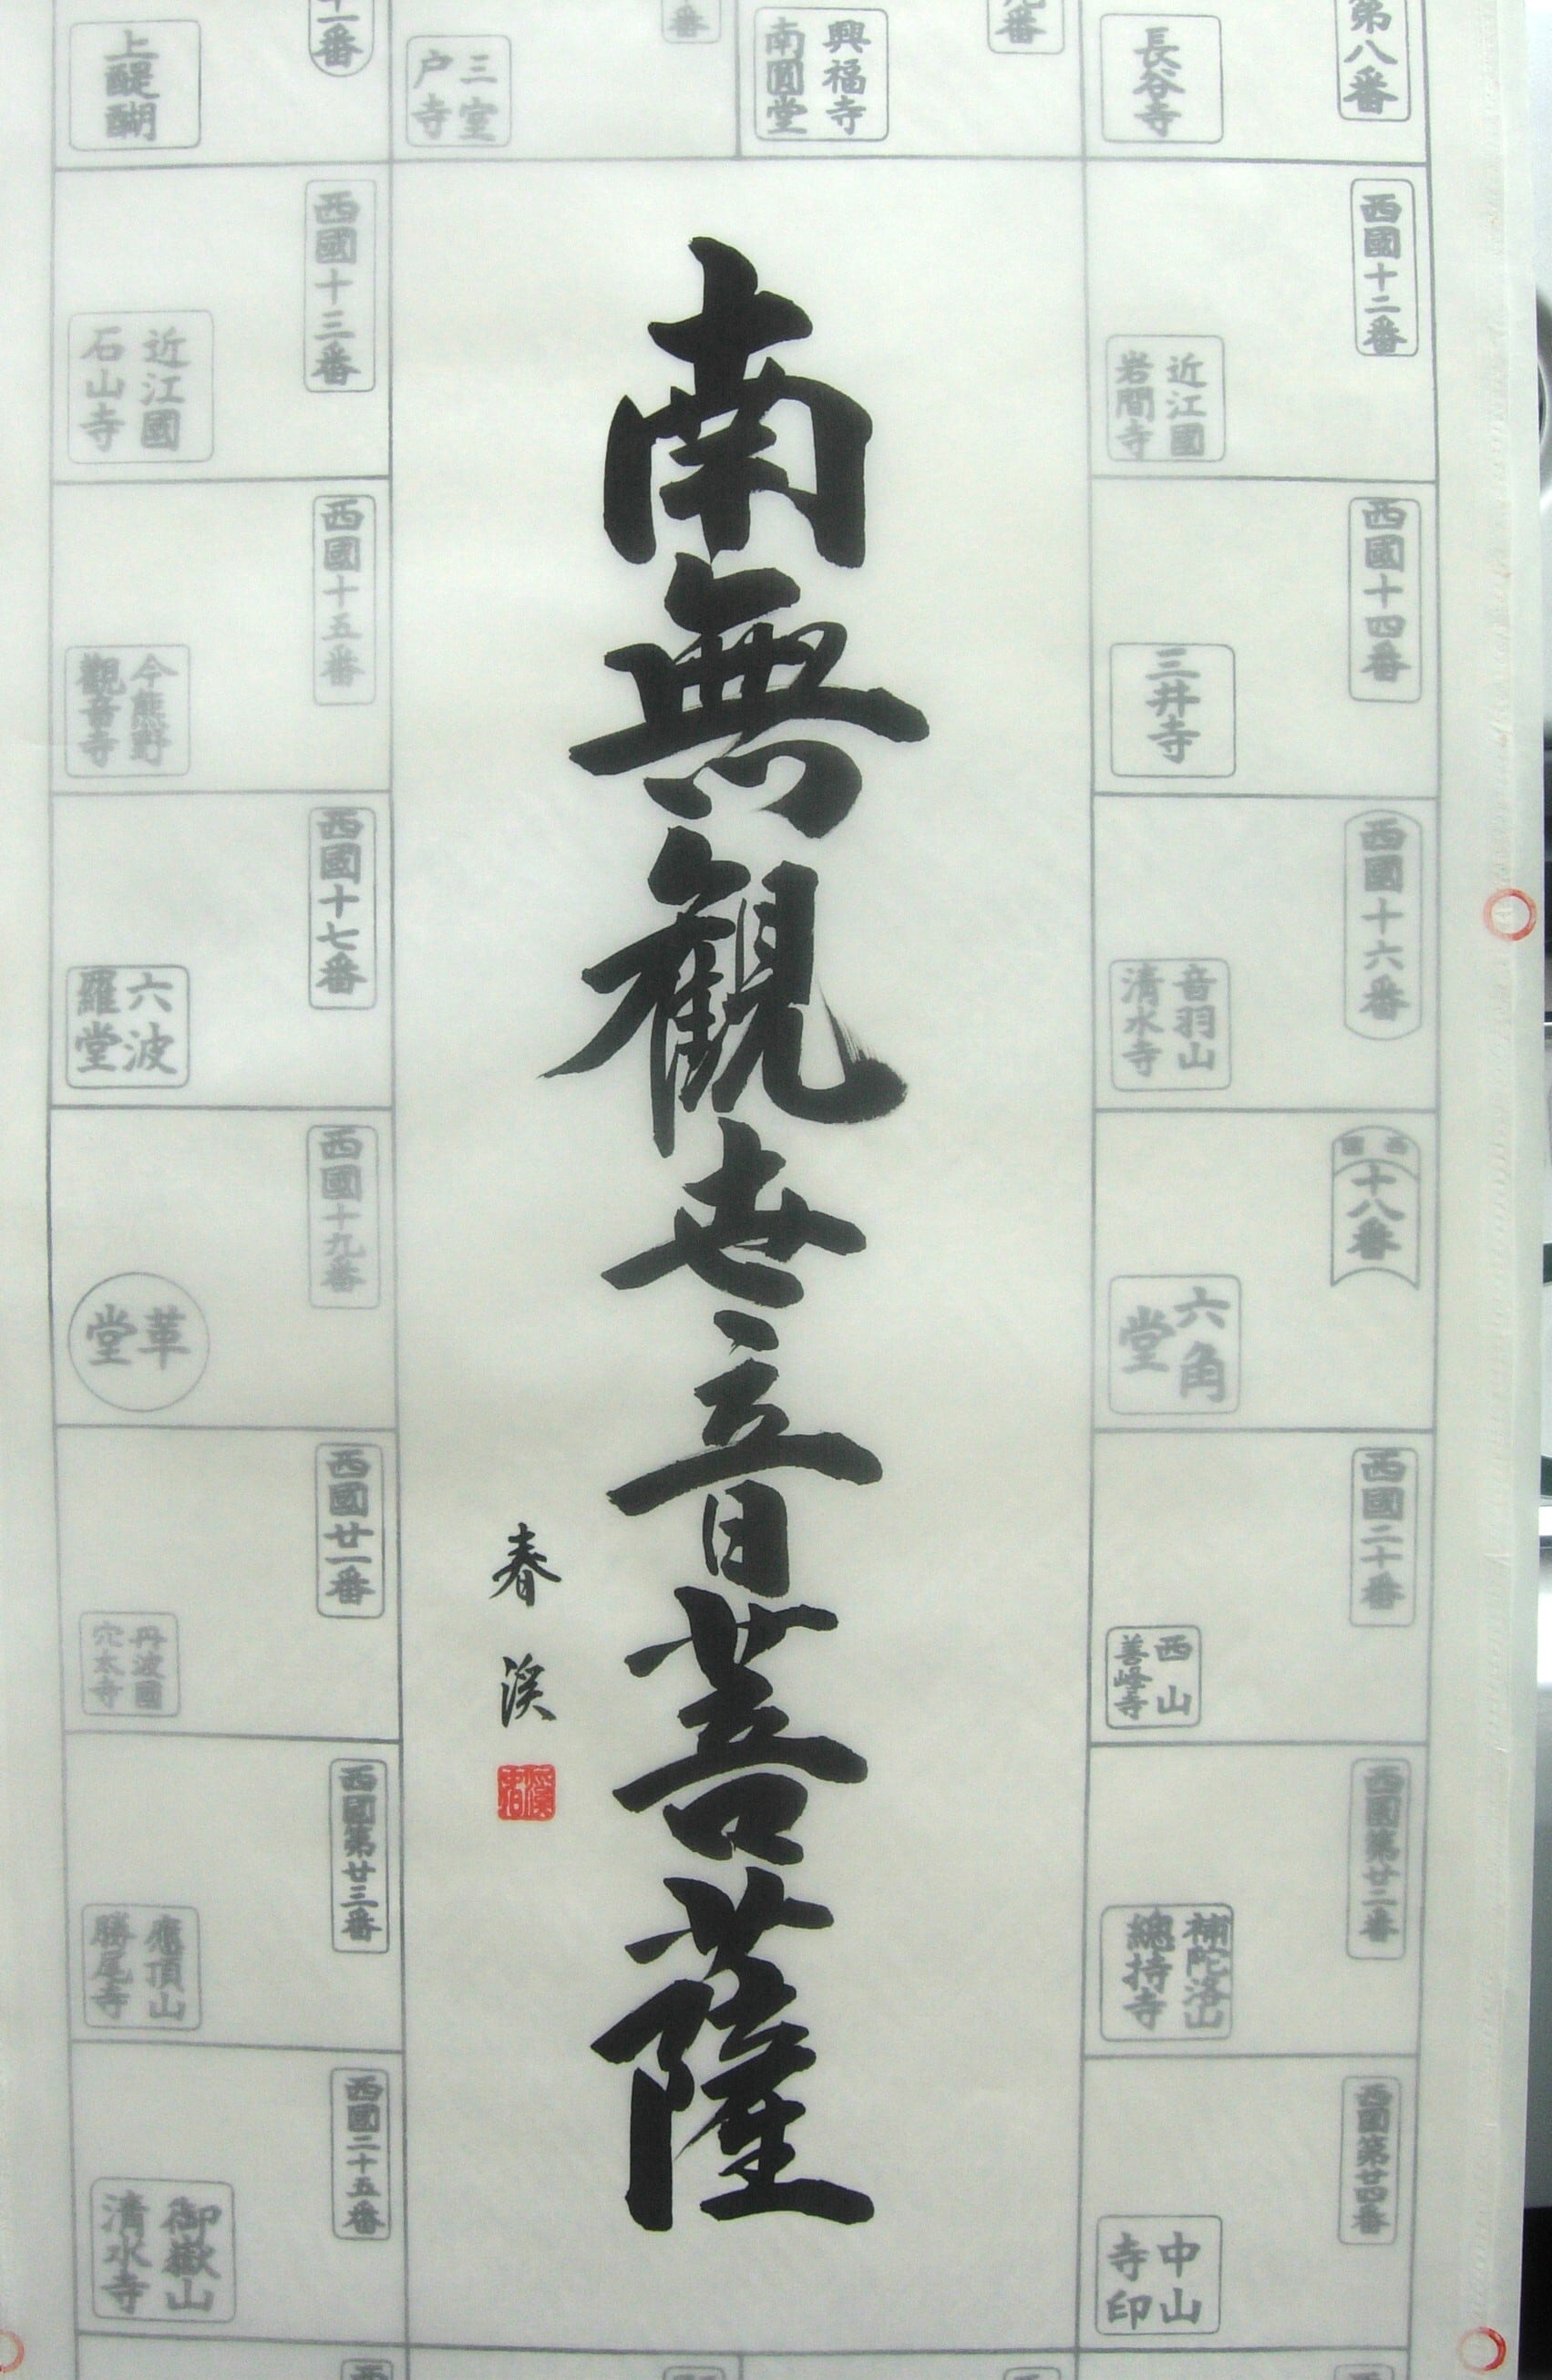 南無観世音菩薩
春渓
第八番
長谷寺
興福寺
南圓堂
三室
戸寺
上醍醐
西國十二番
近江國
岩間寺
西國十三番
近江國
石山寺
西國十四番
三井寺
西國十五番
今熊野
觀音寺
西國十六番
音羽山
清水寺
西國十七番
六波
羅堂
西國
十八番
六角
堂
西國十九番
革
堂
西國二十番
西山
善峰寺
西國廿一番
丹波國
穴太寺
西國第廿二番
補陀洛山
總持寺
西國第廿三番
應頂山
勝尾寺
西國第廿四番
中山
寺印
西國二十五番
御嶽山
清水寺